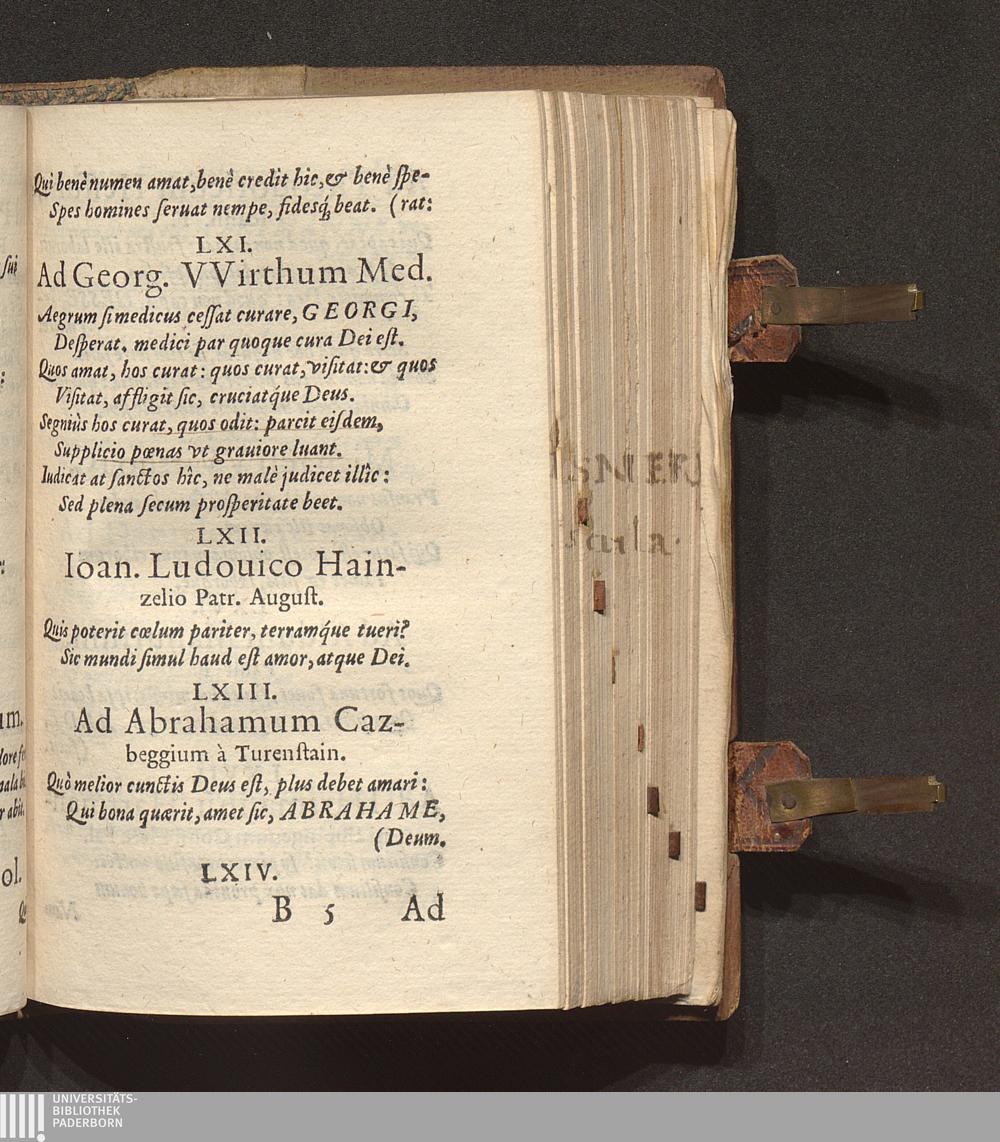 Qui benè numen amat, benè credit hic, & benè ſpe-
Spes homines ſeruat nempe, fidesq́; beat. (rat:
LXI.
Ad Georg. VVirthum Med.
Aegrum ſi medicus ceſſat curare, GEORGI,
Deſperat. medici par quoque cura Dei eſt.
Quos amat, hos curat: quos curat, viſitat: & quos
Viſitat, affligit ſic, cruciatq́ue Deus.
Segniùs hos curat, quos odit: parcit eiſdem,
Supplicio pœnas vt grauiore luant.
Iudicat at ſanctos hîc, ne malè judicet illîc:
Sed plena ſecum proſperitate beet.
LXII.
Ioan. Ludouico Hain-
zelio Patr. Auguſt.
Quis poterit cœlum pariter, terramq́ue tueri?
Sic mundi ſimul haud eſt amor, atque Dei.
LXIII.
Ad Abrahamum Caz-
beggium à Turenſtain.
Quò melior cunctis Deus eſt, plus debet amari:
Qui bona quærit, amet ſic, ABRAHAME,
(Deum.
LXIV.
B 5 Ad
UNIVERSITÄTS-
BIBLIOTHEK
PADERBORN